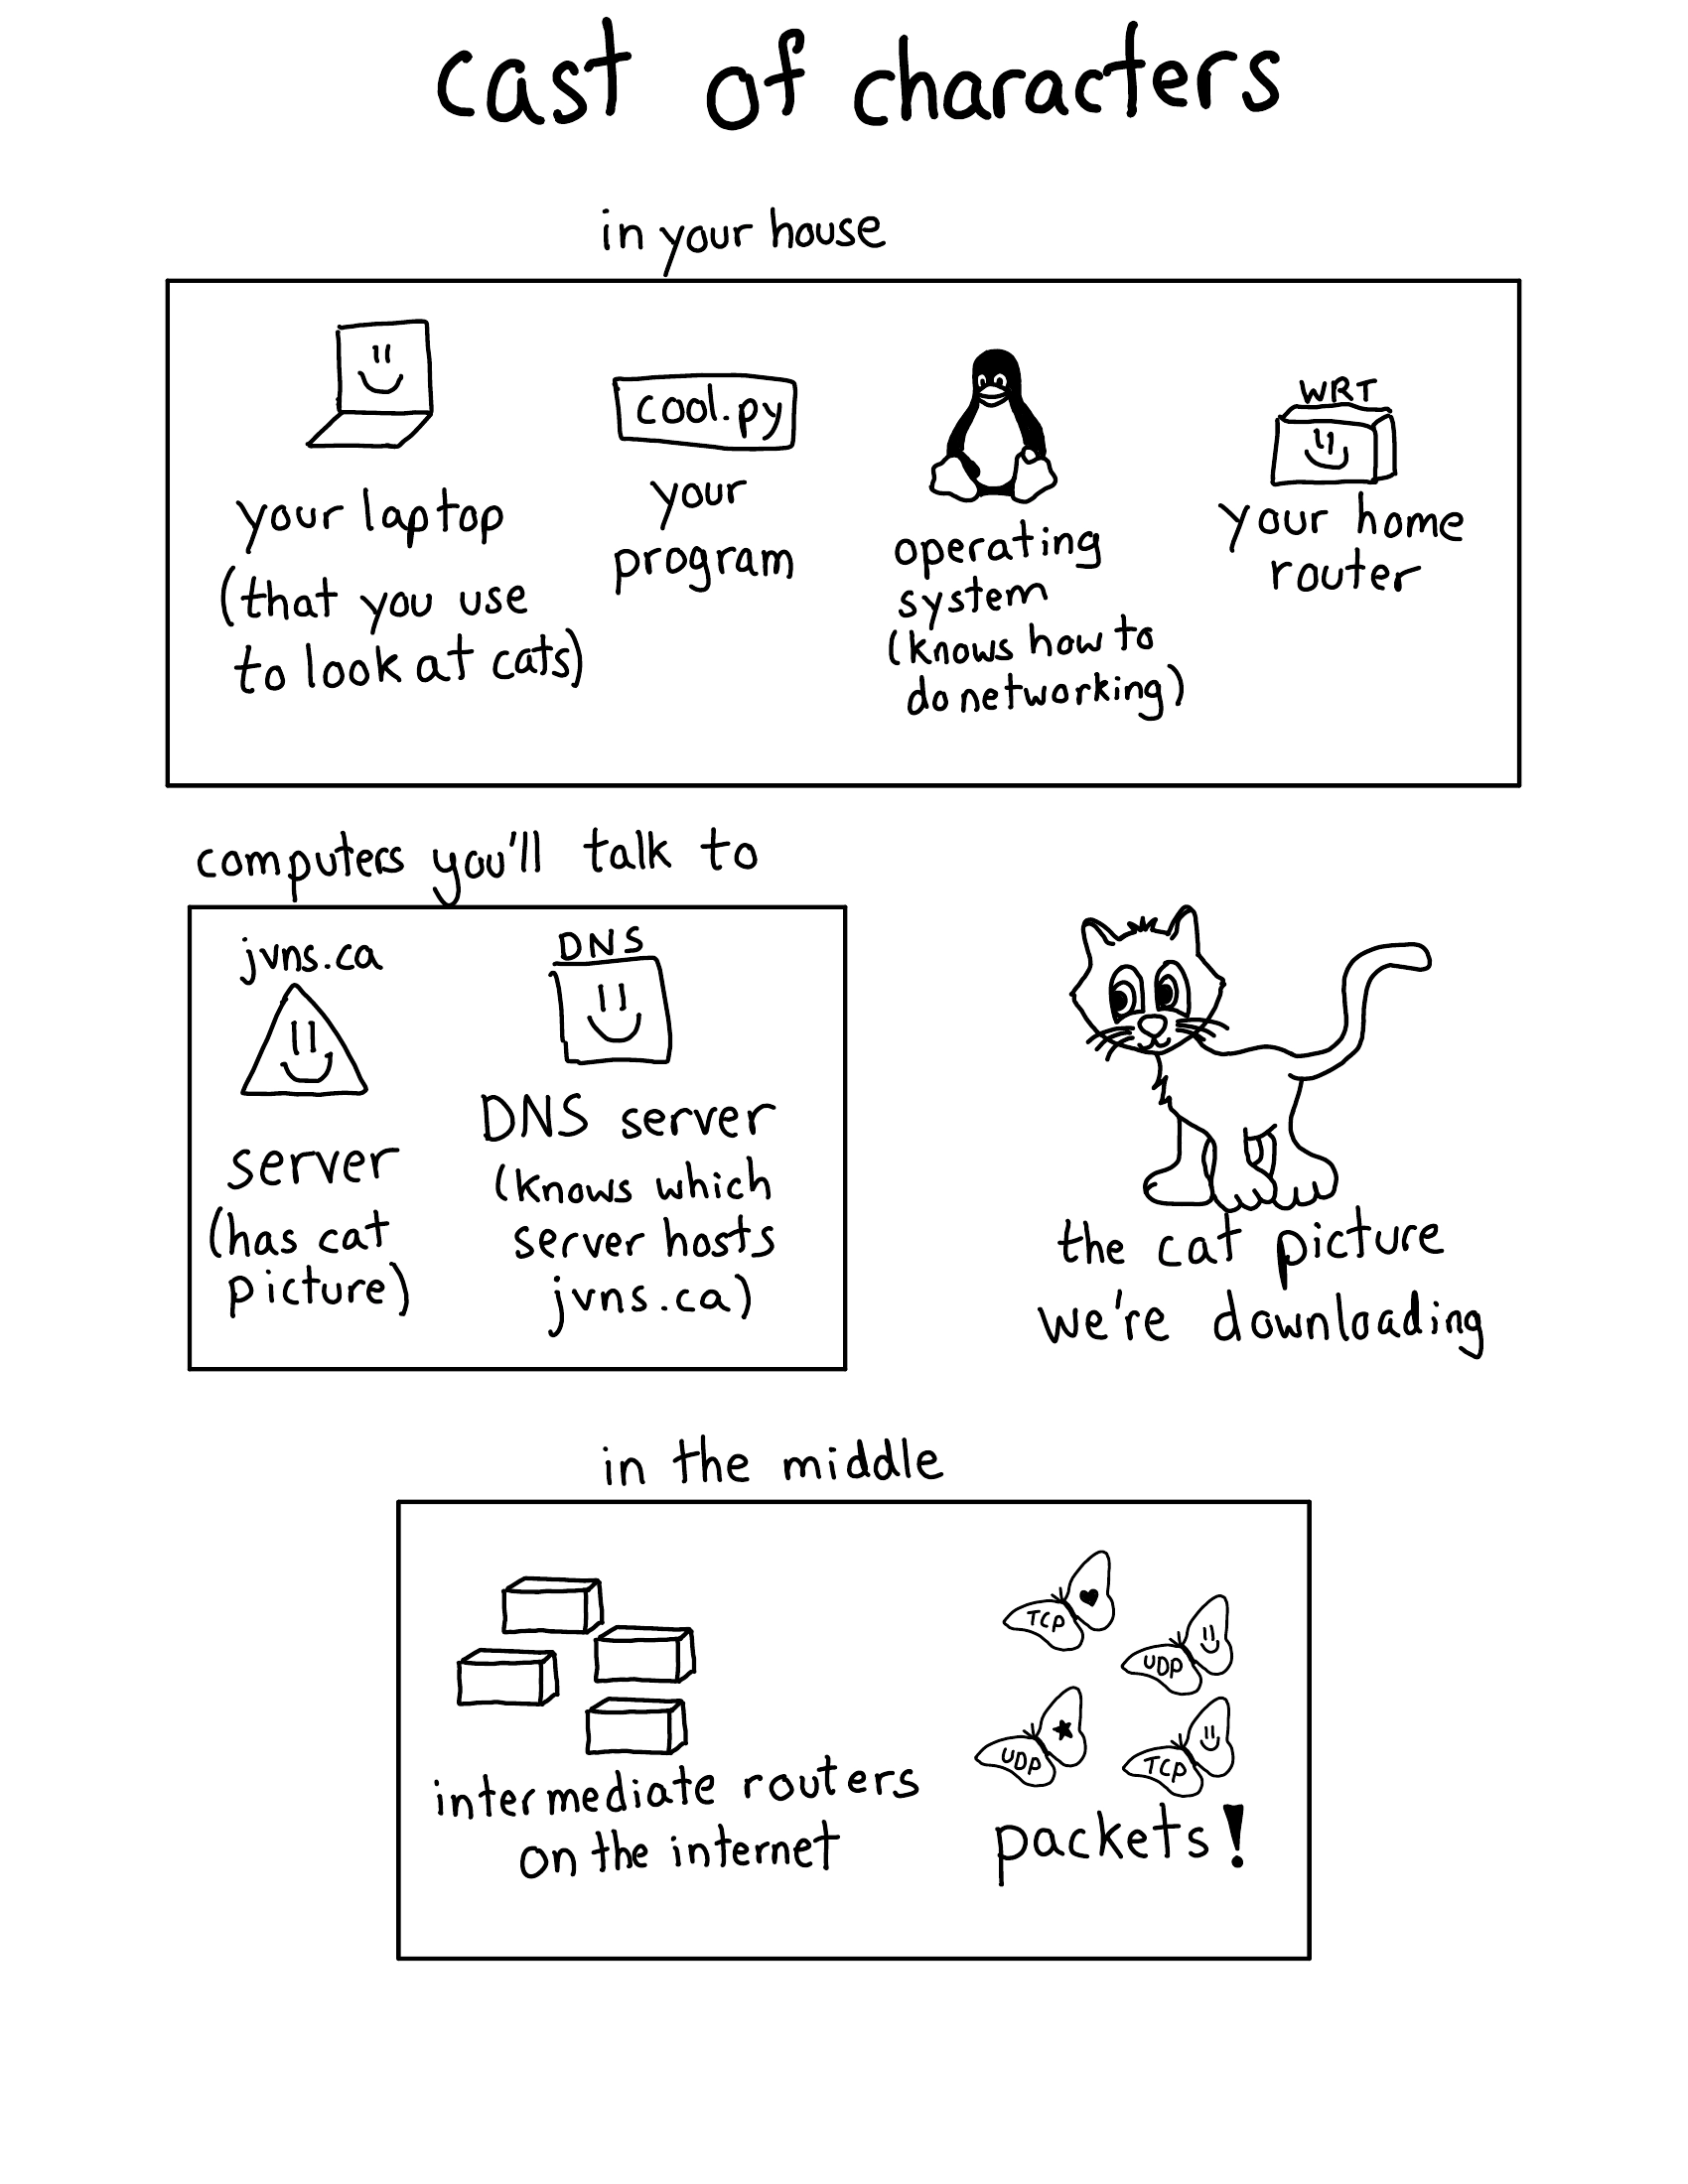 cast of characters
in your house
your laptop
(that you use
to look at cats)
cool.py
your
program
operating
system
(knows how to
do networking)
WRT
your home
router
computers you'll talk to
jvns.ca
server
(has cat
picture)
DNS
DNS server
(knows which
server hosts
jvns.ca)
the cat picture
we're downloading
in the middle
intermediate routers
on the internet
TCP
UDP
UDP
TCP
packets!